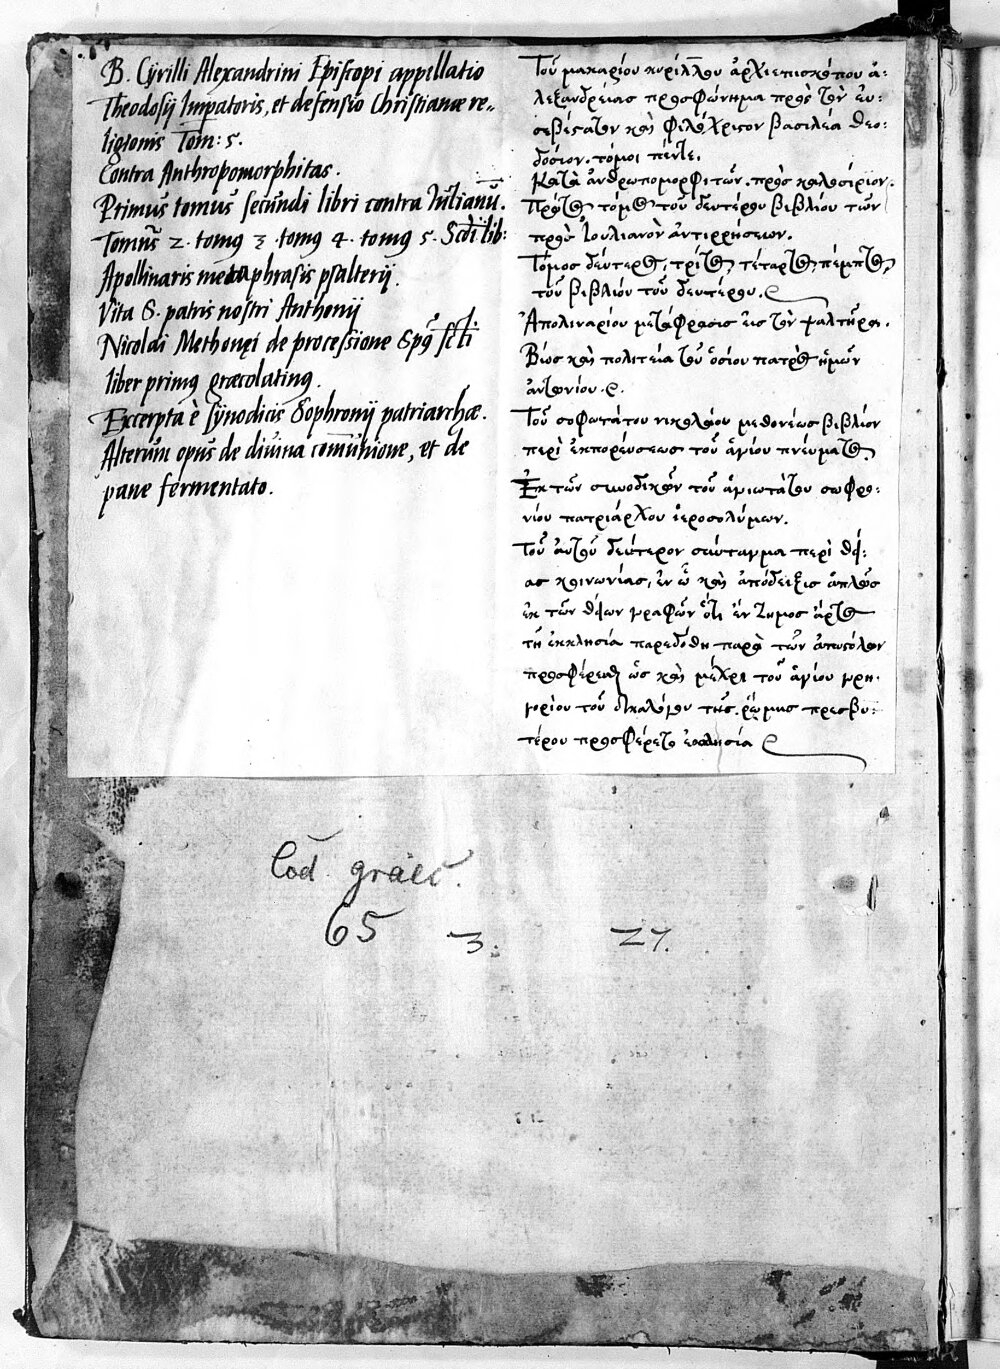 B. Cÿrilli Alexandrini Episcopi appellatio
Theodosÿ Impatoris, et defensio Christianæ re„
ligionis Tom: 5.
Contra Anthropomorphitas.
Primus tomus secundi libri contra Iulianū.
Tomus 2. tomꝯ 3. tomꝯ 4. tomꝯ 5. Scdi lib:
Apollinaris metaphrasis psalterij.
Vita S. patris nostri Anthonij
Nicolai Methonęi de processione Spꝯ scti
liber primꝯ græcolatinꝯ.
Excerpta è synodicis Sophronij patriarchæ.
Alterum opus de divina comunione, et de
pane fermentato.
Τοῦ μακαρίου κυρίλλου ἀρχιεπισκόπου ἀ:
λεξανδρείας προσφώνημα πρὸς τὸν εὐ:
σεβέστατον καὶ φιλόχριστον βασιλέα θεο:
δόσιον. τόμοι πέντε.
Κατὰ ἀνθρωπομορφιτῶν. πρὸς καλοσίριον.
Πρῶτος τόμος τοῦ δευτέρου βιβλίου τῶν
πρὸς Ἰουλιανὸν ἀντιρρήσεων.
Τόμος δεύτερος, τρίτος, τέταρτος, πέμπτος,
τοῦ βιβλίου τοῦ δευτέρου.
Ἀπολιναρίου μετάφρασις εἰς τὸν ψαλτῆρα.
Βίος καὶ πολιτεία τοῦ ὁσίου πατρὸς ἡμῶν
ἀντωνίου.
Τοῦ σοφωτάτου νικολάου μεθονέως βιβλίον
περὶ ἐκπορέυσεως τοῦ ἁγίου πνέυματος
Ἐκ τῶν συνοδικῶν τοῦ ἁγιωτάτου σωφρο:
νίου πατριάρχου ἱεροσολύμων.
Τοῦ αὐτοῦ δεύτερον σύνταγμα περὶ θεί:
ας κοινωνίας, ἐν ᾧ καὶ ἀπόδειξις ἁπλῶς
ἐκ τῶν θείων γραφῶν ὅτι ἔνζυμος ἄρτος
τῇ ἐκκλησία παρεδόθη παρὰ τῶν ἀποστόλων
προσφέρεσθαι ὡς καὶ μέχρι τοῦ ἁγίου γρη:
γορίου τοῦ διαλόγου τῆς ῥώμης πρεσβυ:
τέρου προσφέρετο
Cod. graec.
65 3. 27.